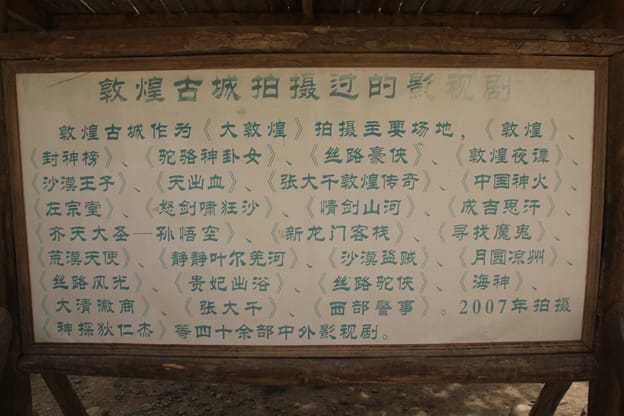 敦煌古城拍摄过的影视剧
敦煌古城作为《大敦煌》拍摄主要场地，《敦煌》、
《封神榜》、《驼骆神卦女》、《丝路豪侠》、《敦煌夜谭》、
《沙漠王子》、《天出血》、《张大千敦煌传奇》、《中国神火》、
《左宗堂》、《怒剑啸狂沙》、《情剑山河》、《成吉思汗》、
《齐天大圣—孙悟空》、《新龙门客栈》、《寻找魔鬼》、
《荒漠天使》、《静静叶尔羌河》、《沙漠盗贼》、《月圆凉州》、
《丝路风光》、《贵妃出浴》、《丝路驼侠》、《海神》、
《大清徽商》、《张大千》、《西部警事》。2007年拍摄
《神探狄仁杰》等四十余部中外影视剧。